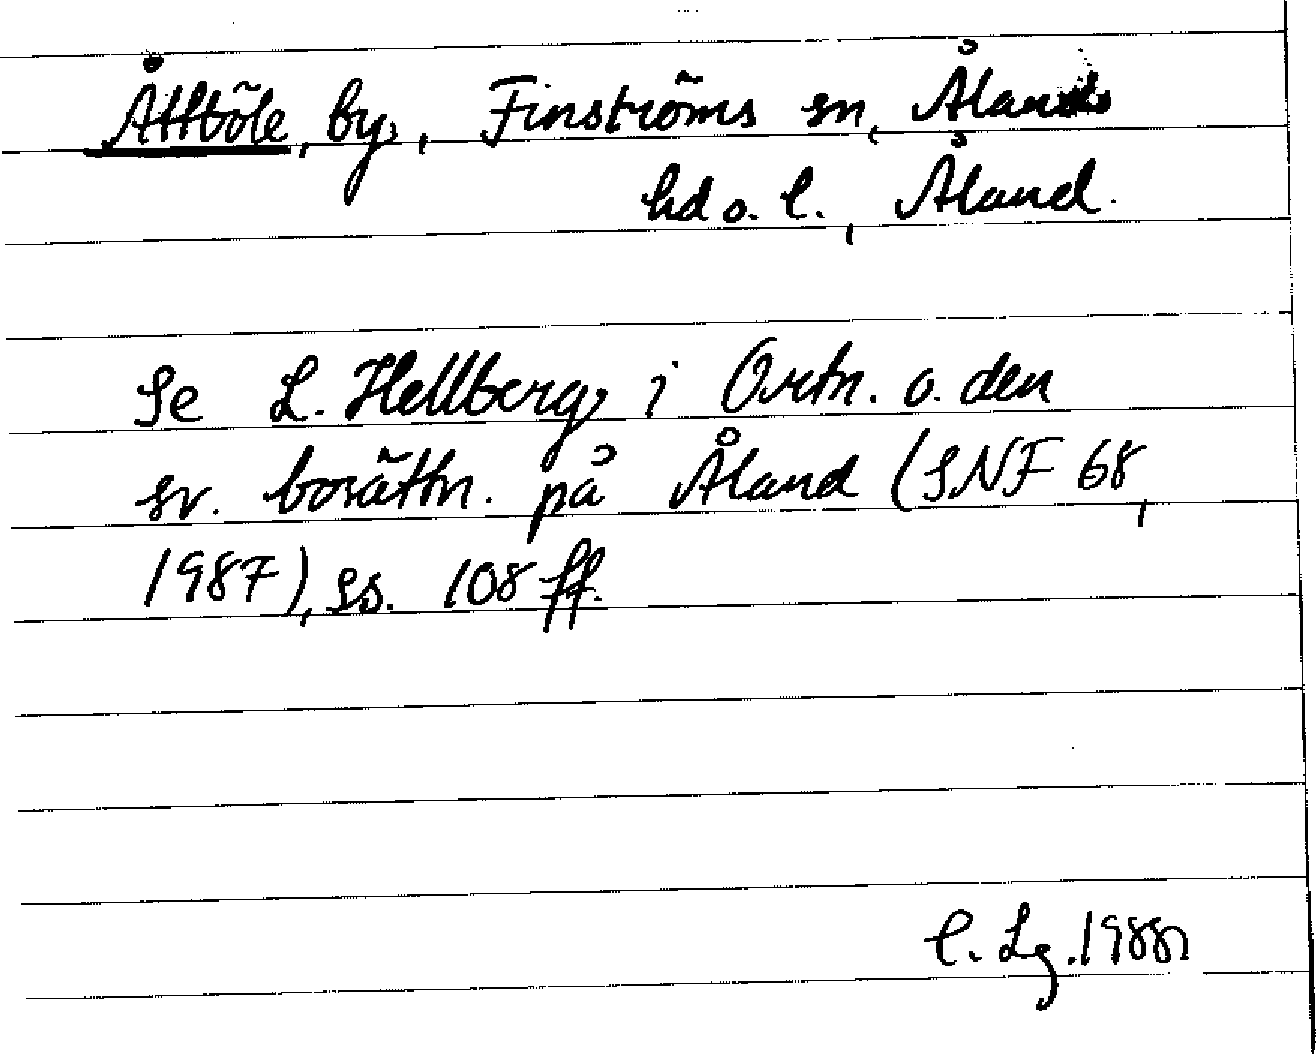 Åttböle, by, Finströms sn, Ålands
hd o. l., Åland.
Se L. Hellberg i Ortn. o. den
sv. bosättn. på Åland (SNF 68,
1987), ss. 108 ff.
C. Lg. 1988